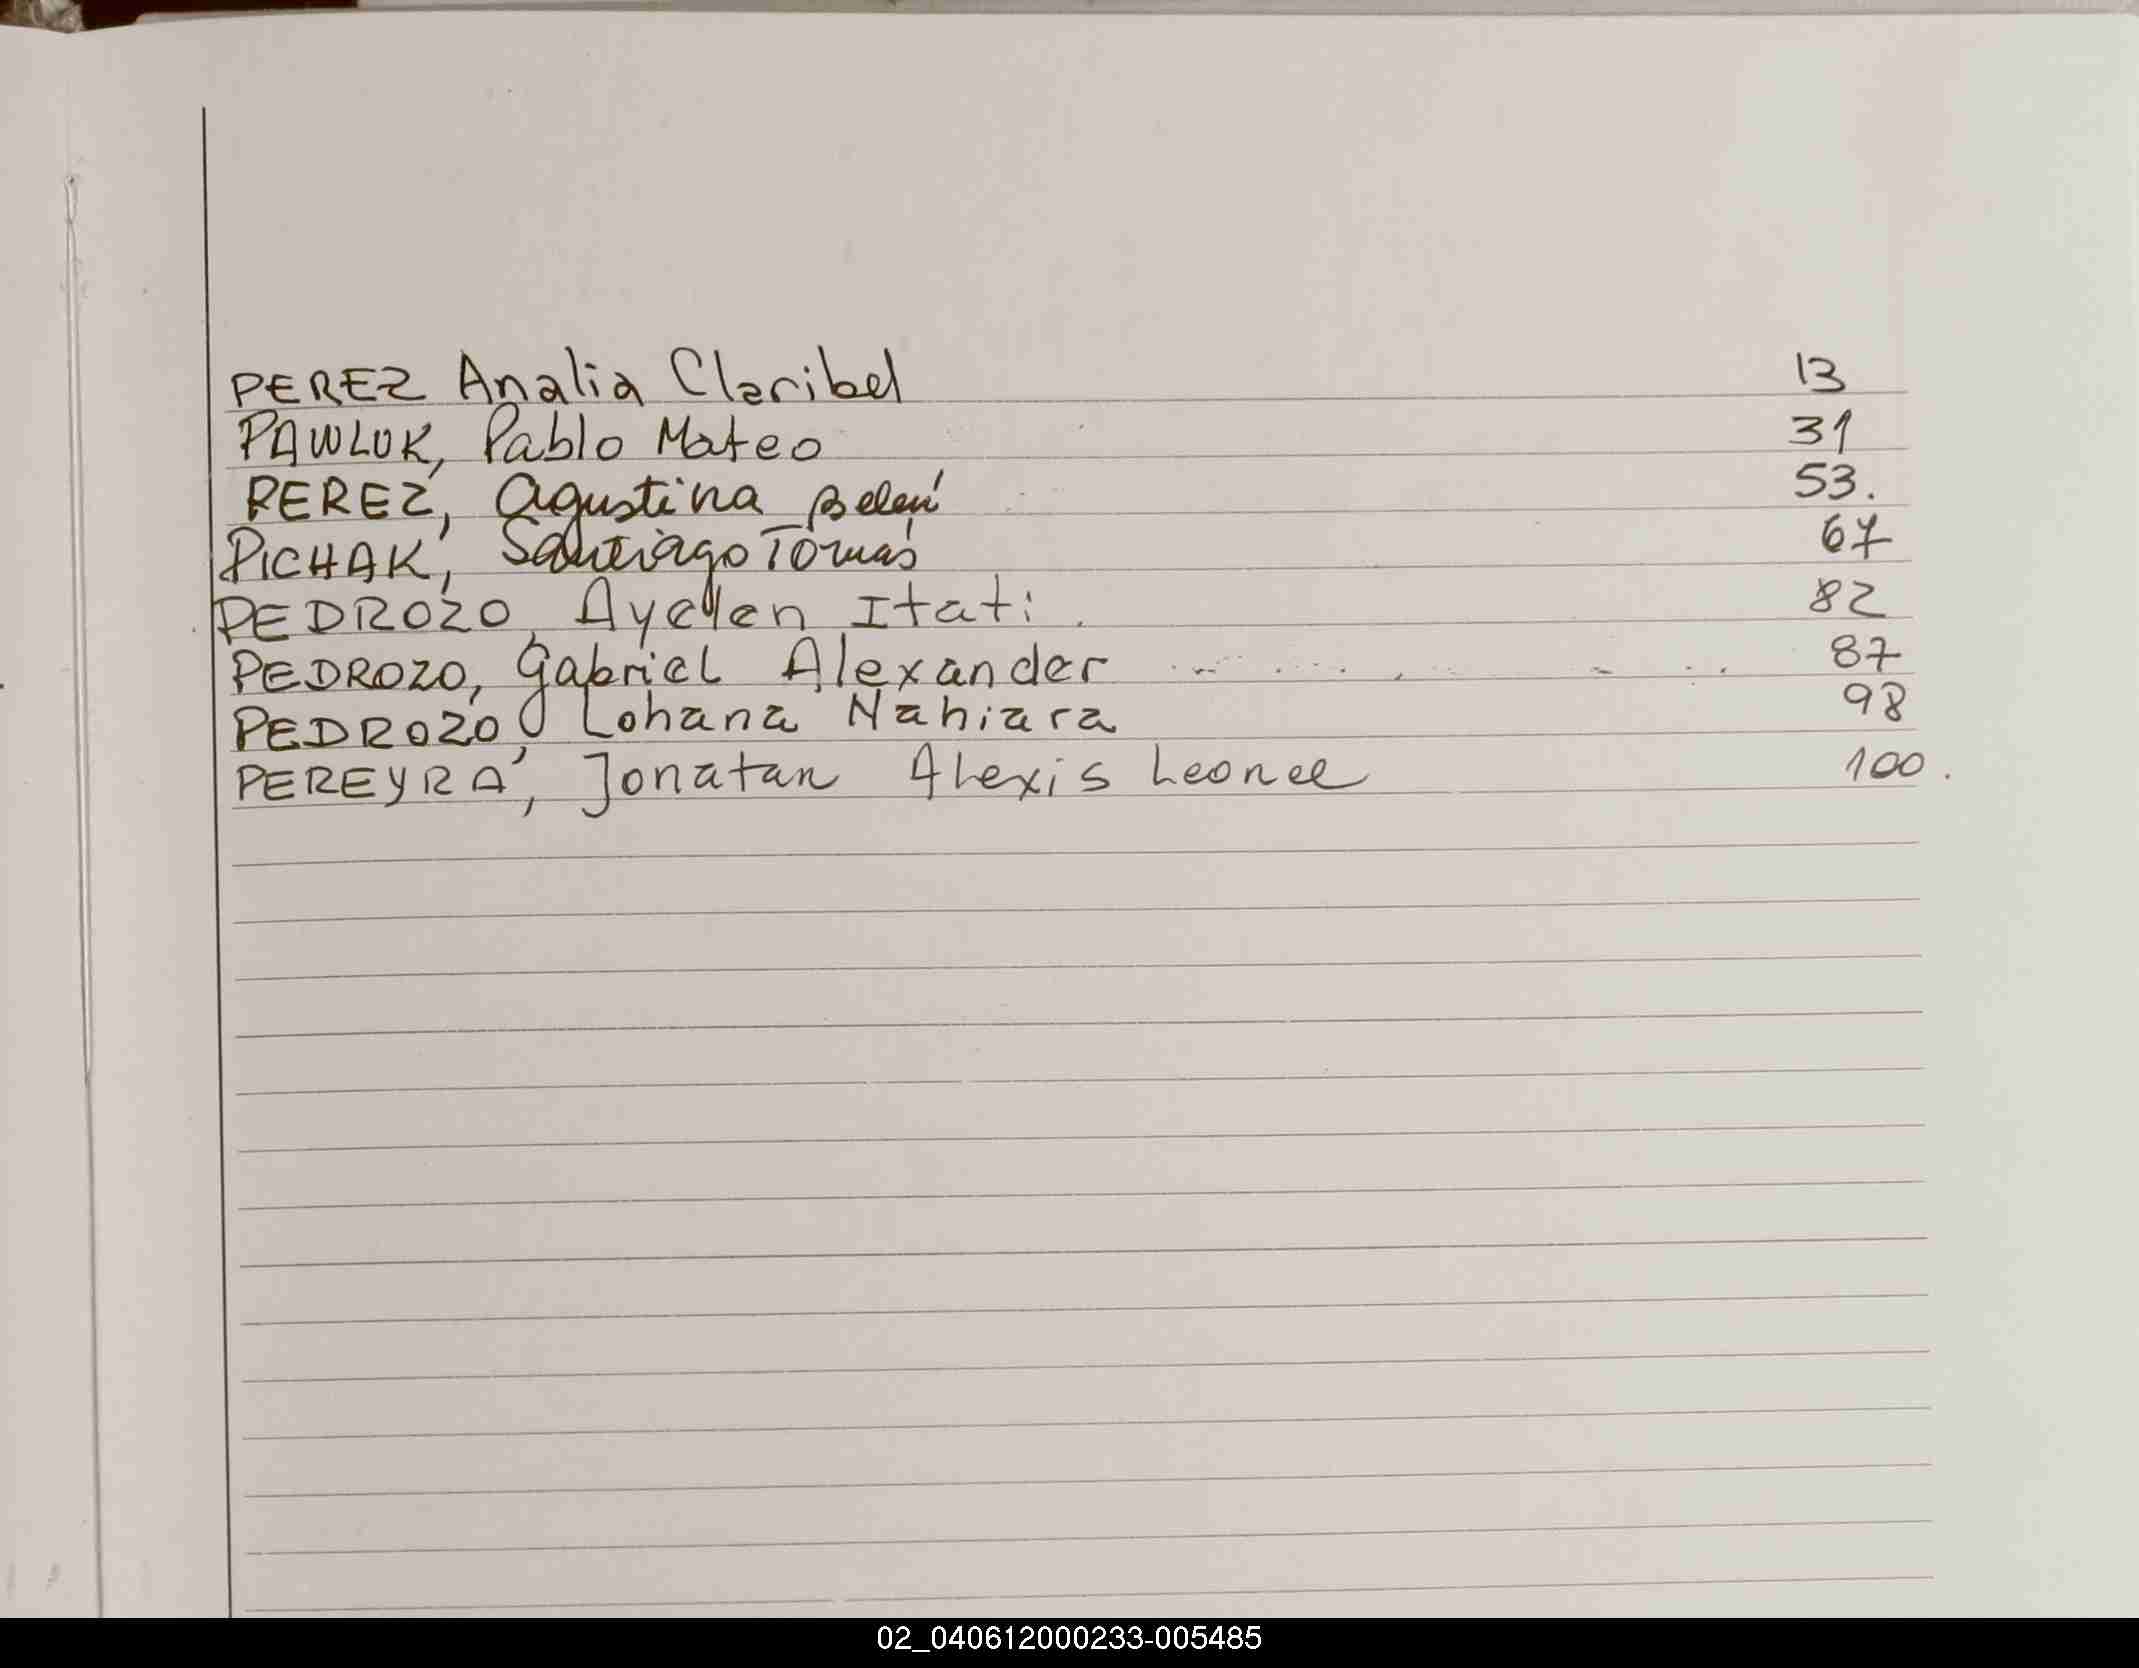 PEREZ Analia Claribel 13
PAWLUK, Pablo Mateo 31
PEREZ, Agustina Belén 53.
PICHAK, Santiago Tomás 67
PEDROZO, Ayelen Itati. 82
PEDROZO, Gabriel Alexander 87
PEDROZO Lohana Nahiara 98
PEREYRA, Jonatan Alexis Leonel 100.
02_040612000233-005485